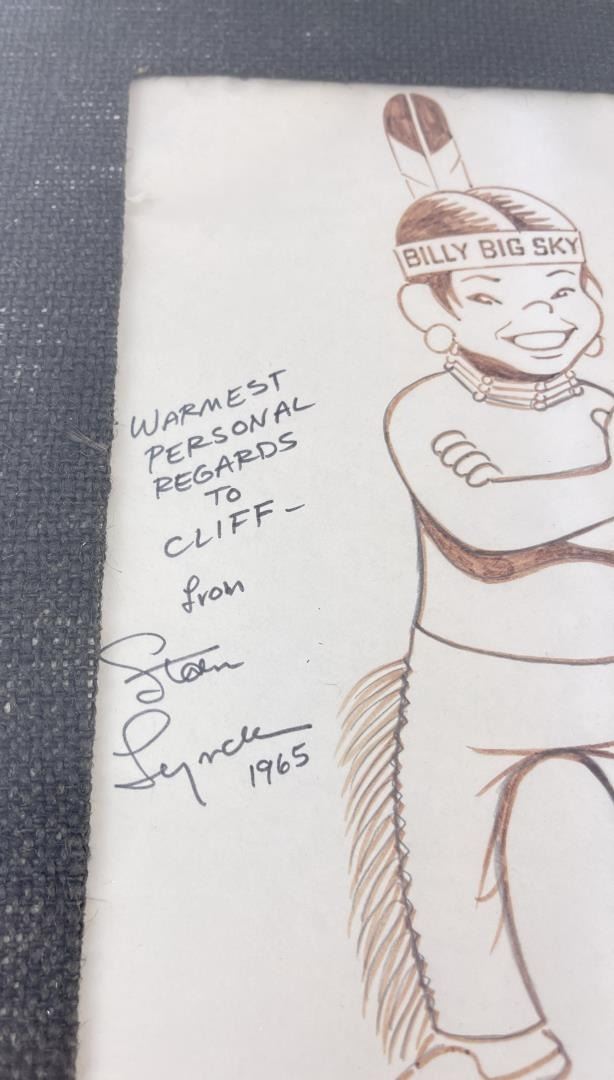 BILLY BIG SKY
WARMEST
PERSONAL
REGARDS
TO
CLIFF-
from
Stan
Lynde
1965